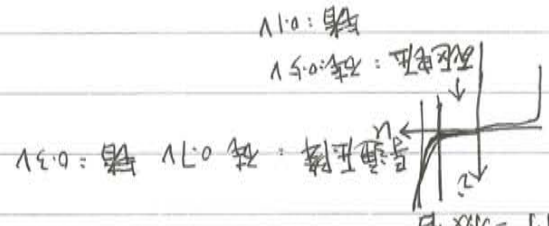 i
u
导通压降：硅 0.7V 锗：0.3V
死区电压：硅：0.5V
锗：0.1V